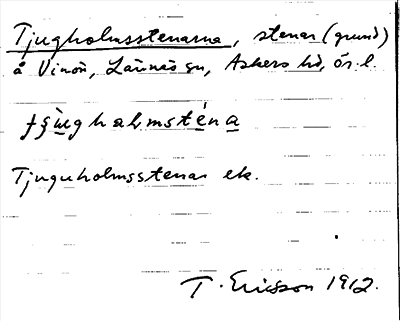 Tjugholmsstenarna, stenar (grund)
å Vinön, Lännäs sn, Askers hd, Ör. l.
Tjuguholmsstenar ek.
T. Ericsson 1912.